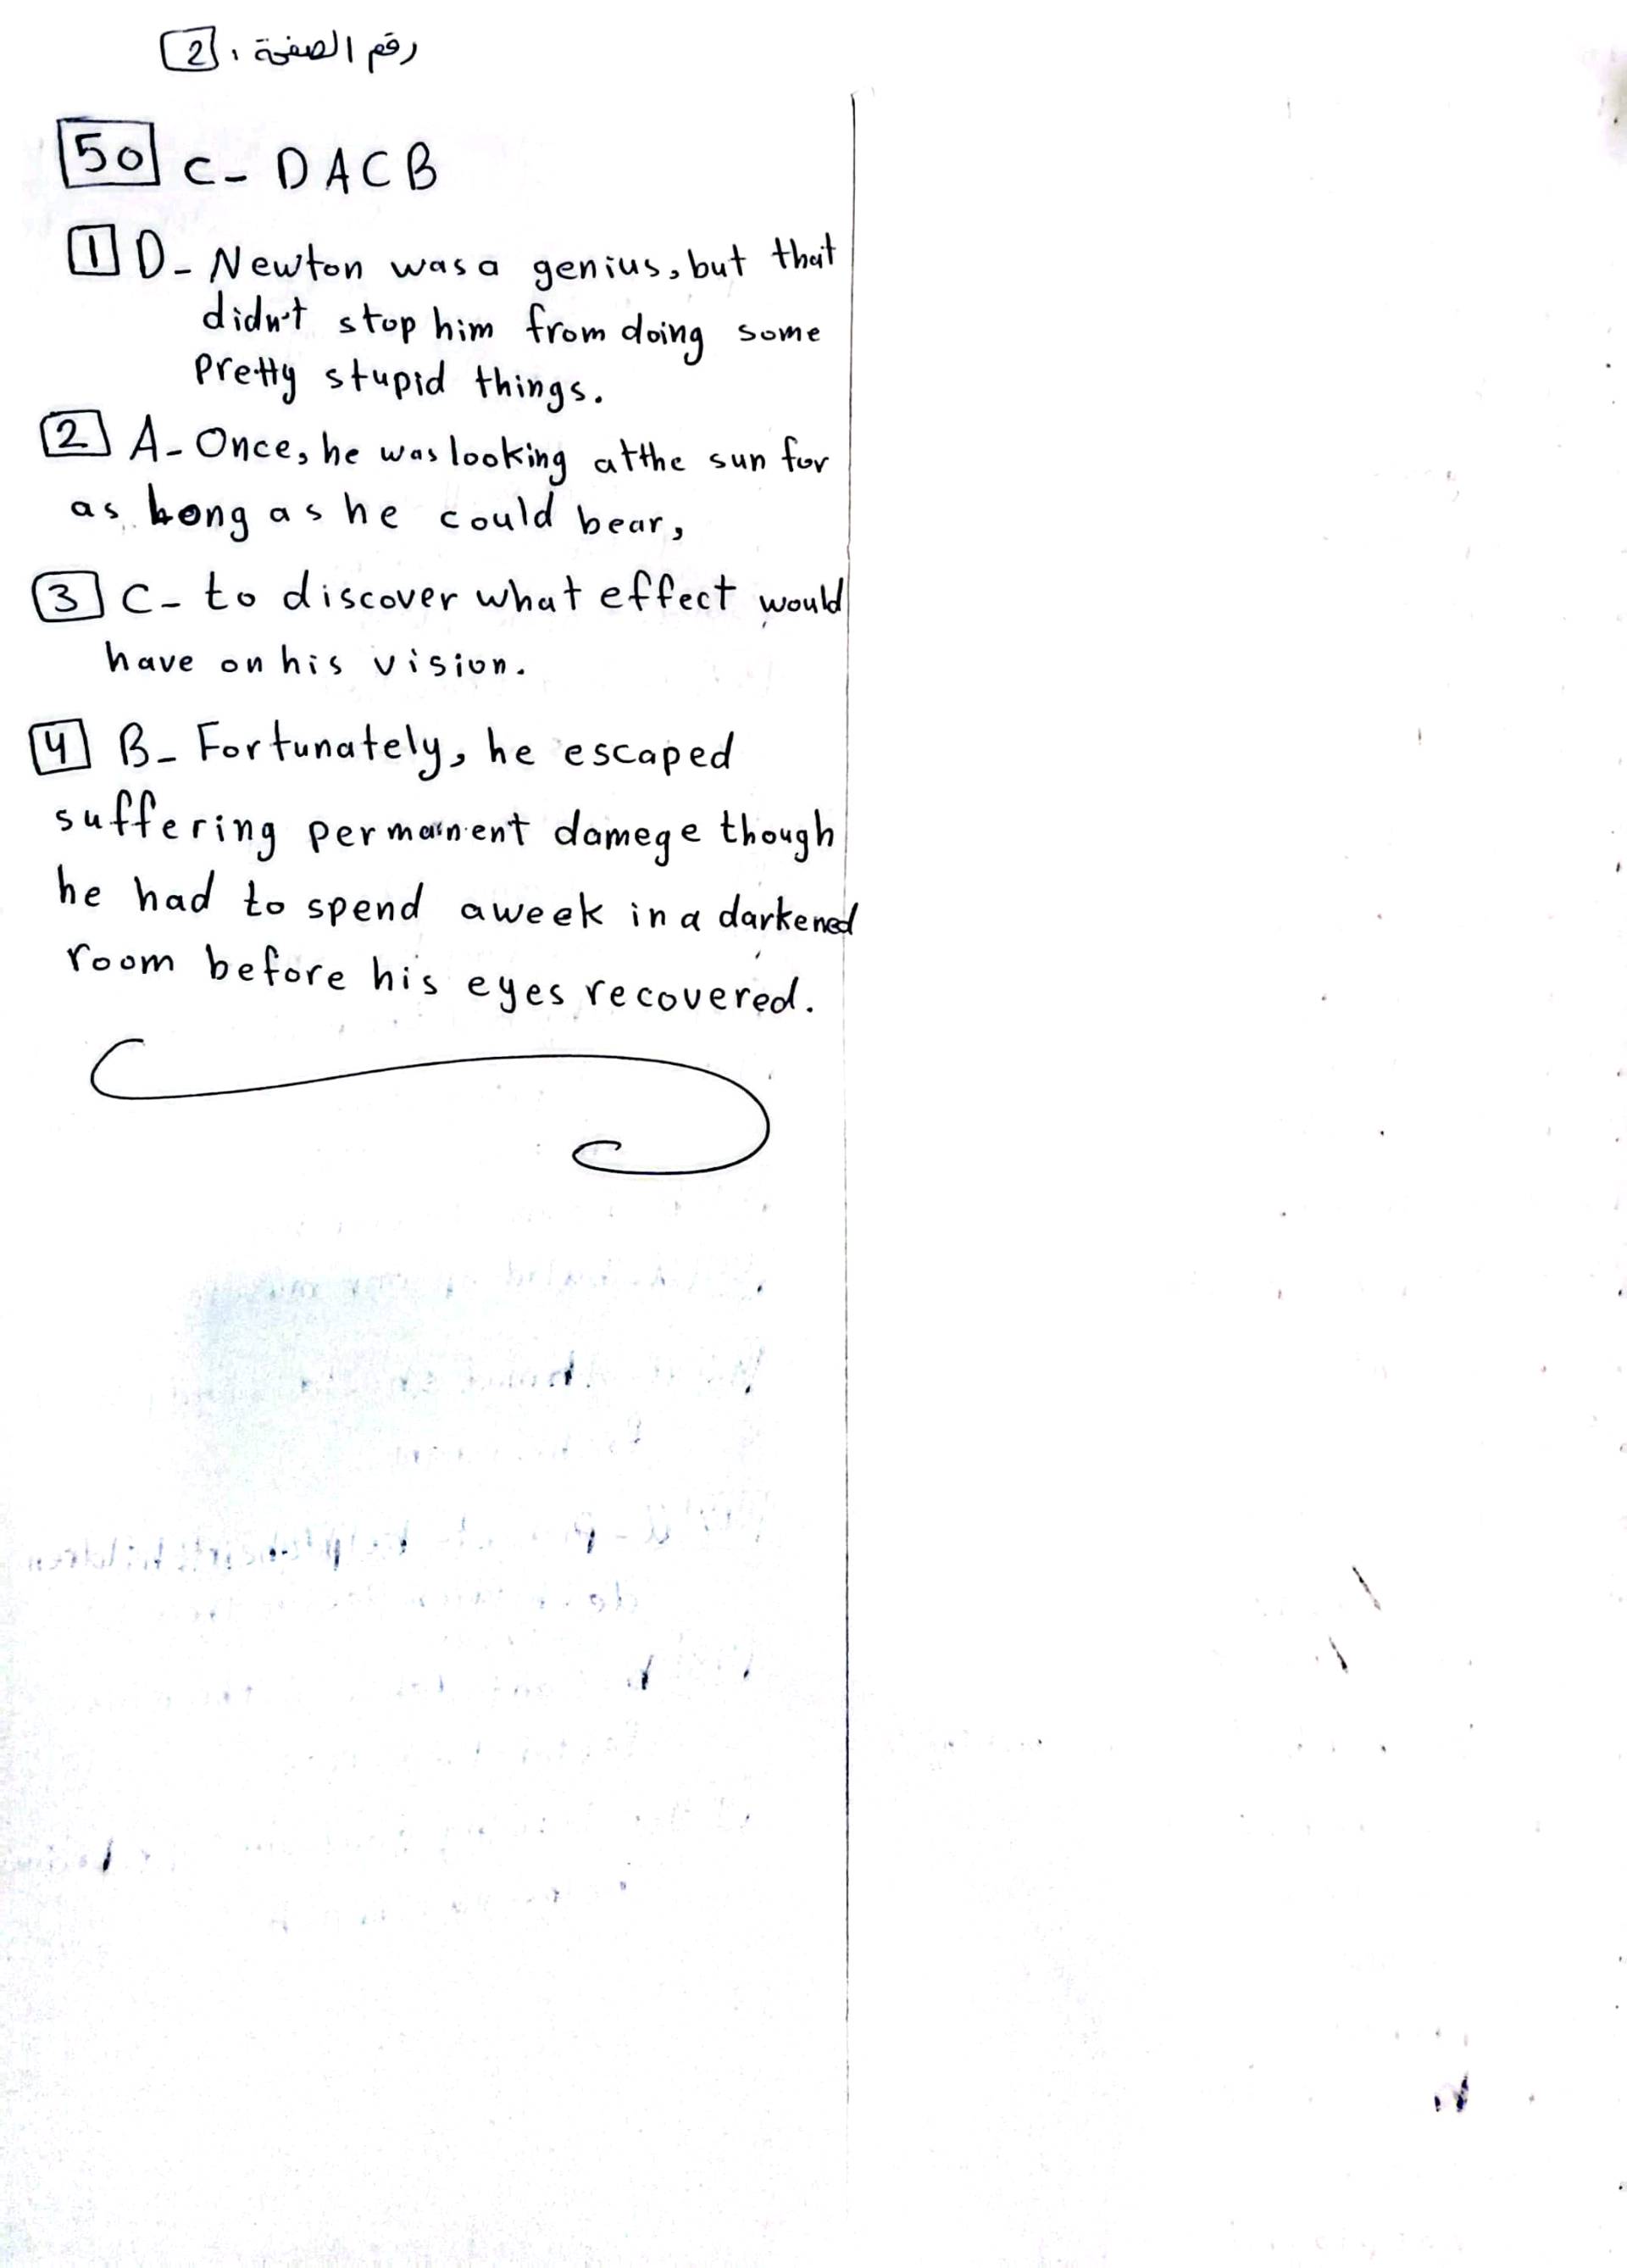 رقم الصفحة: 2
50 C- DACB
1 D- Newton was a genius, but that
didn't stop him from doing some
pretty stupid things.
2 A- Once, he was looking at the sun for
as long as he could bear,
3 C- to discover what effect would
have on his vision.
4 B- Fortunately, he escaped
suffering permanent damege though
he had to spend a week in a darkened
room before his eyes recovered.